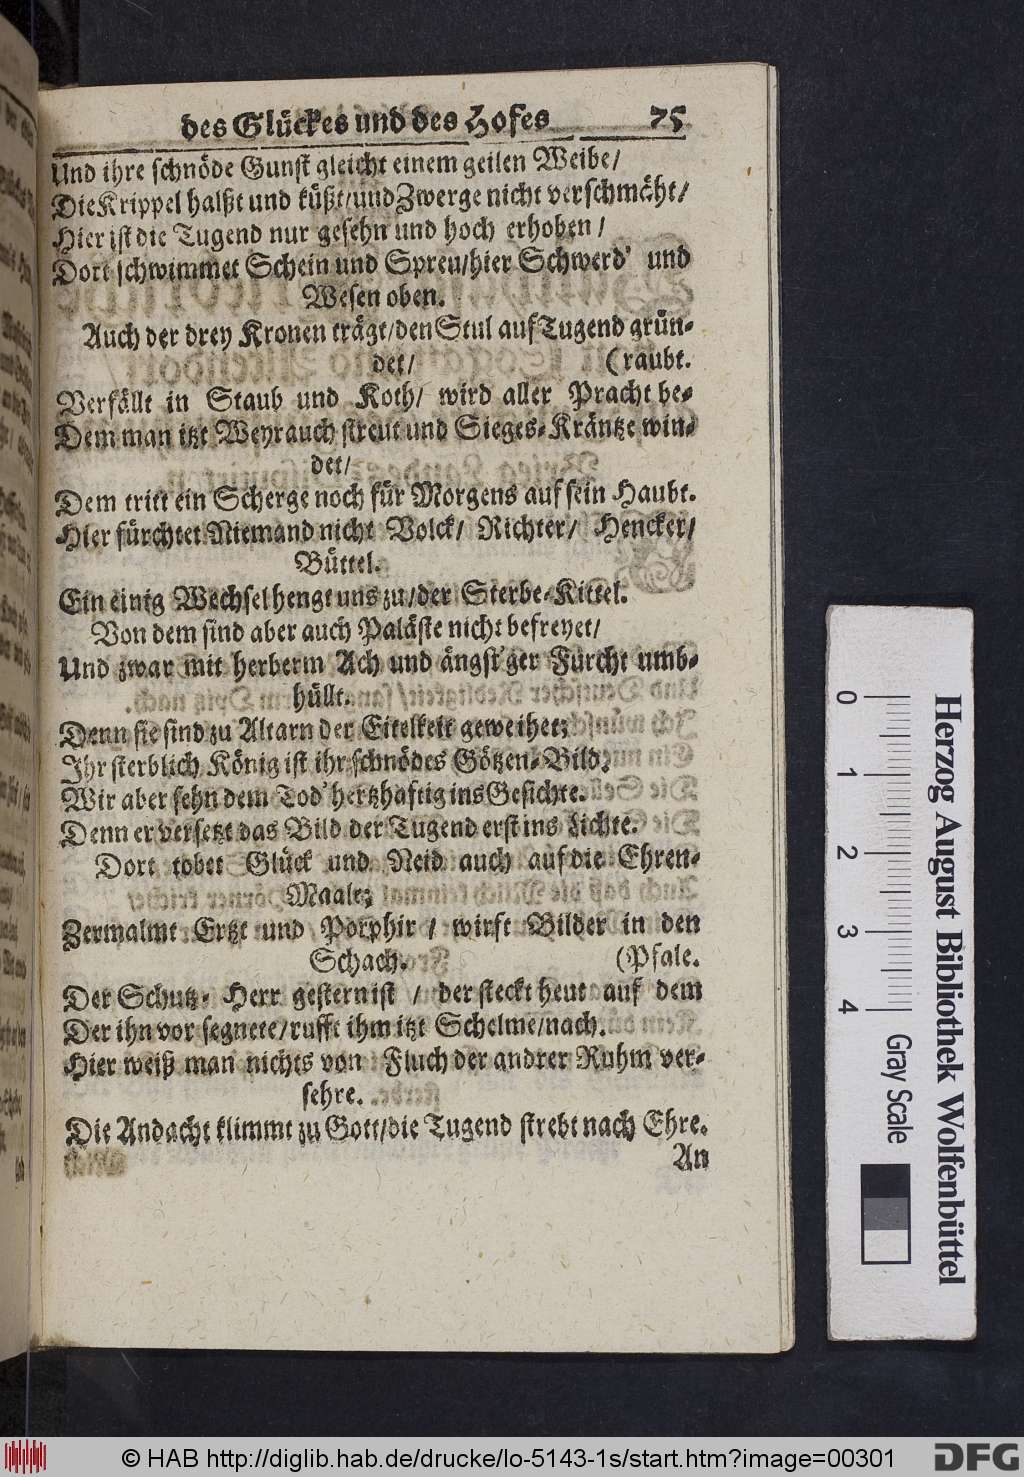 des Glückes und des Hofes 75
Und ihre schnöde Gunst gleicht einem geilen Weibe/
Die Krippel halßt und küßt/und Zwerge nicht verschmäht/
Hier ist die Tugend nur gesehn und hoch erhoben /
Dort schwimmet Schein und Spreu/hier Schwerd' und
Wesen oben.
Auch der drey Kronen trägt/den Stul auf Tugend grün-
det/ (raubt.
Verfällt in Staub und Koth/ wird aller Pracht be-
Dem man itzt Weyrauch streut und Sieges-Kräntze win-
det/
Dem tritt ein Scherge noch für Morgens auf sein Haubt.
Hier fürchtet Niemand nicht Volck/ Richter/ Hencker/
Büttel.
Ein einig Wechsel hengt uns zu/der Sterbe-Kittel.
Von dem sind aber auch Paläste nicht befreyet/
Und zwar mit herberm Ach und ängst'ger Furcht umb-
hüllt.
Denn sie sind zu Altarn der Eitelkeit geweihet;
Ihr sterblich König ist ihr schnödes Götzen-Bild.
Wir aber sehn dem Tod' hertzhaftig ins Gesichte.
Denn er versetzt das Bild der Tugend erst ins Lichte.
Dort tobet Glück und Neid auch auf die Ehren-
Maale;
Zermalmt Ertzt und Porphir / wirft Bilder in den
Schach. (Pfale.
Der Schutz- Herr gestern ist / der steckt heut auf dem
Der ihn vor segnete/rufft ihm itzt Schelme/nach.
Hier weiß man nichts von Fluch der andrer Ruhm ver-
sehre.
Die Andacht klimmt zu Gott/die Tugend strebt nach Ehre.
An
0 1 2 3 4
Herzog August Bibliothek Wolfenbüttel
Gray Scale
© HAB http://diglib.hab.de/drucke/lo-5143-1s/start.htm?image=00301
DFG